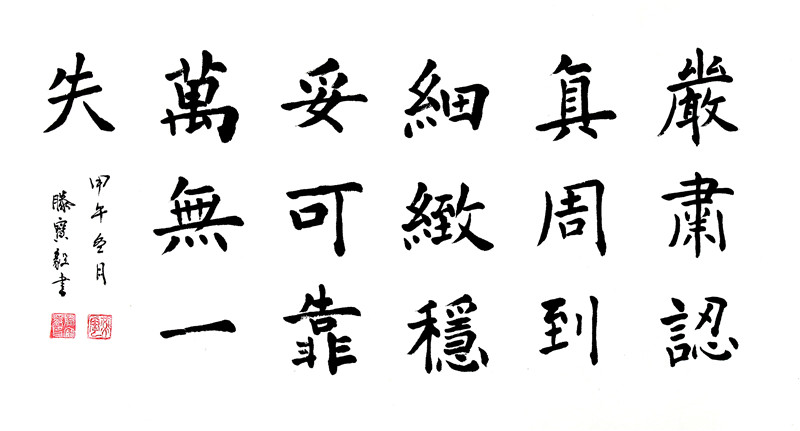 嚴肅認
真周到
細緻穩
妥可靠
萬無一
失
甲午冬月
滕寶毅書